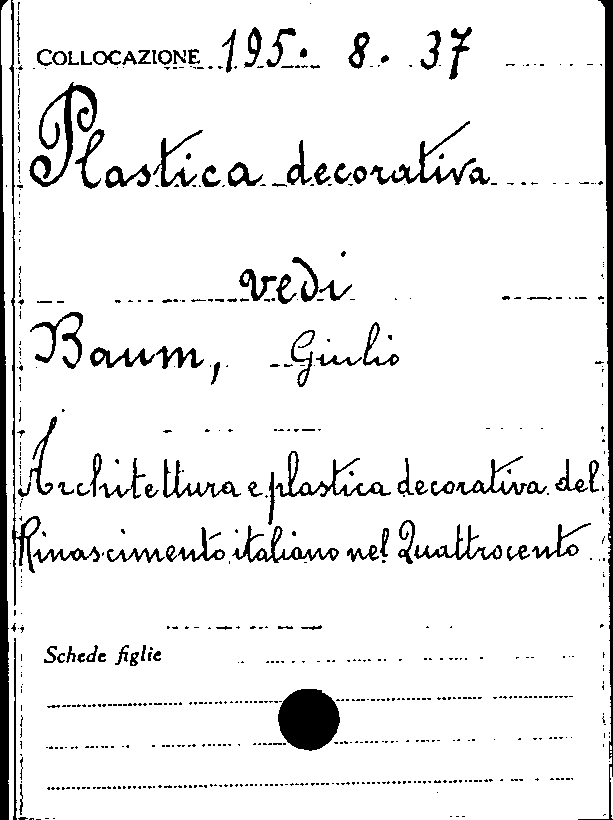 COLLOCAZIONE 195. 8. 37
Plastica decorativa
vedi
Baum, Giulio
Architettura e plastica decorativa del
Rinascimento italiano nel Quattrocento
Schede figlie